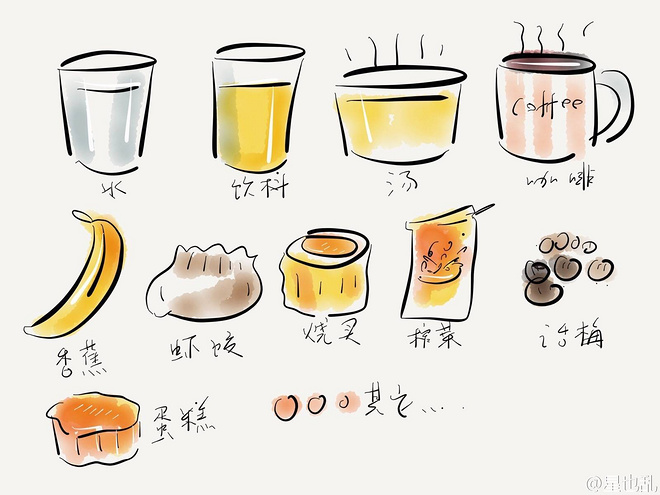 Coffee
水 饮料 汤 咖啡
香蕉 虾饺 烧卖 榨菜 话梅
蛋糕 其它......